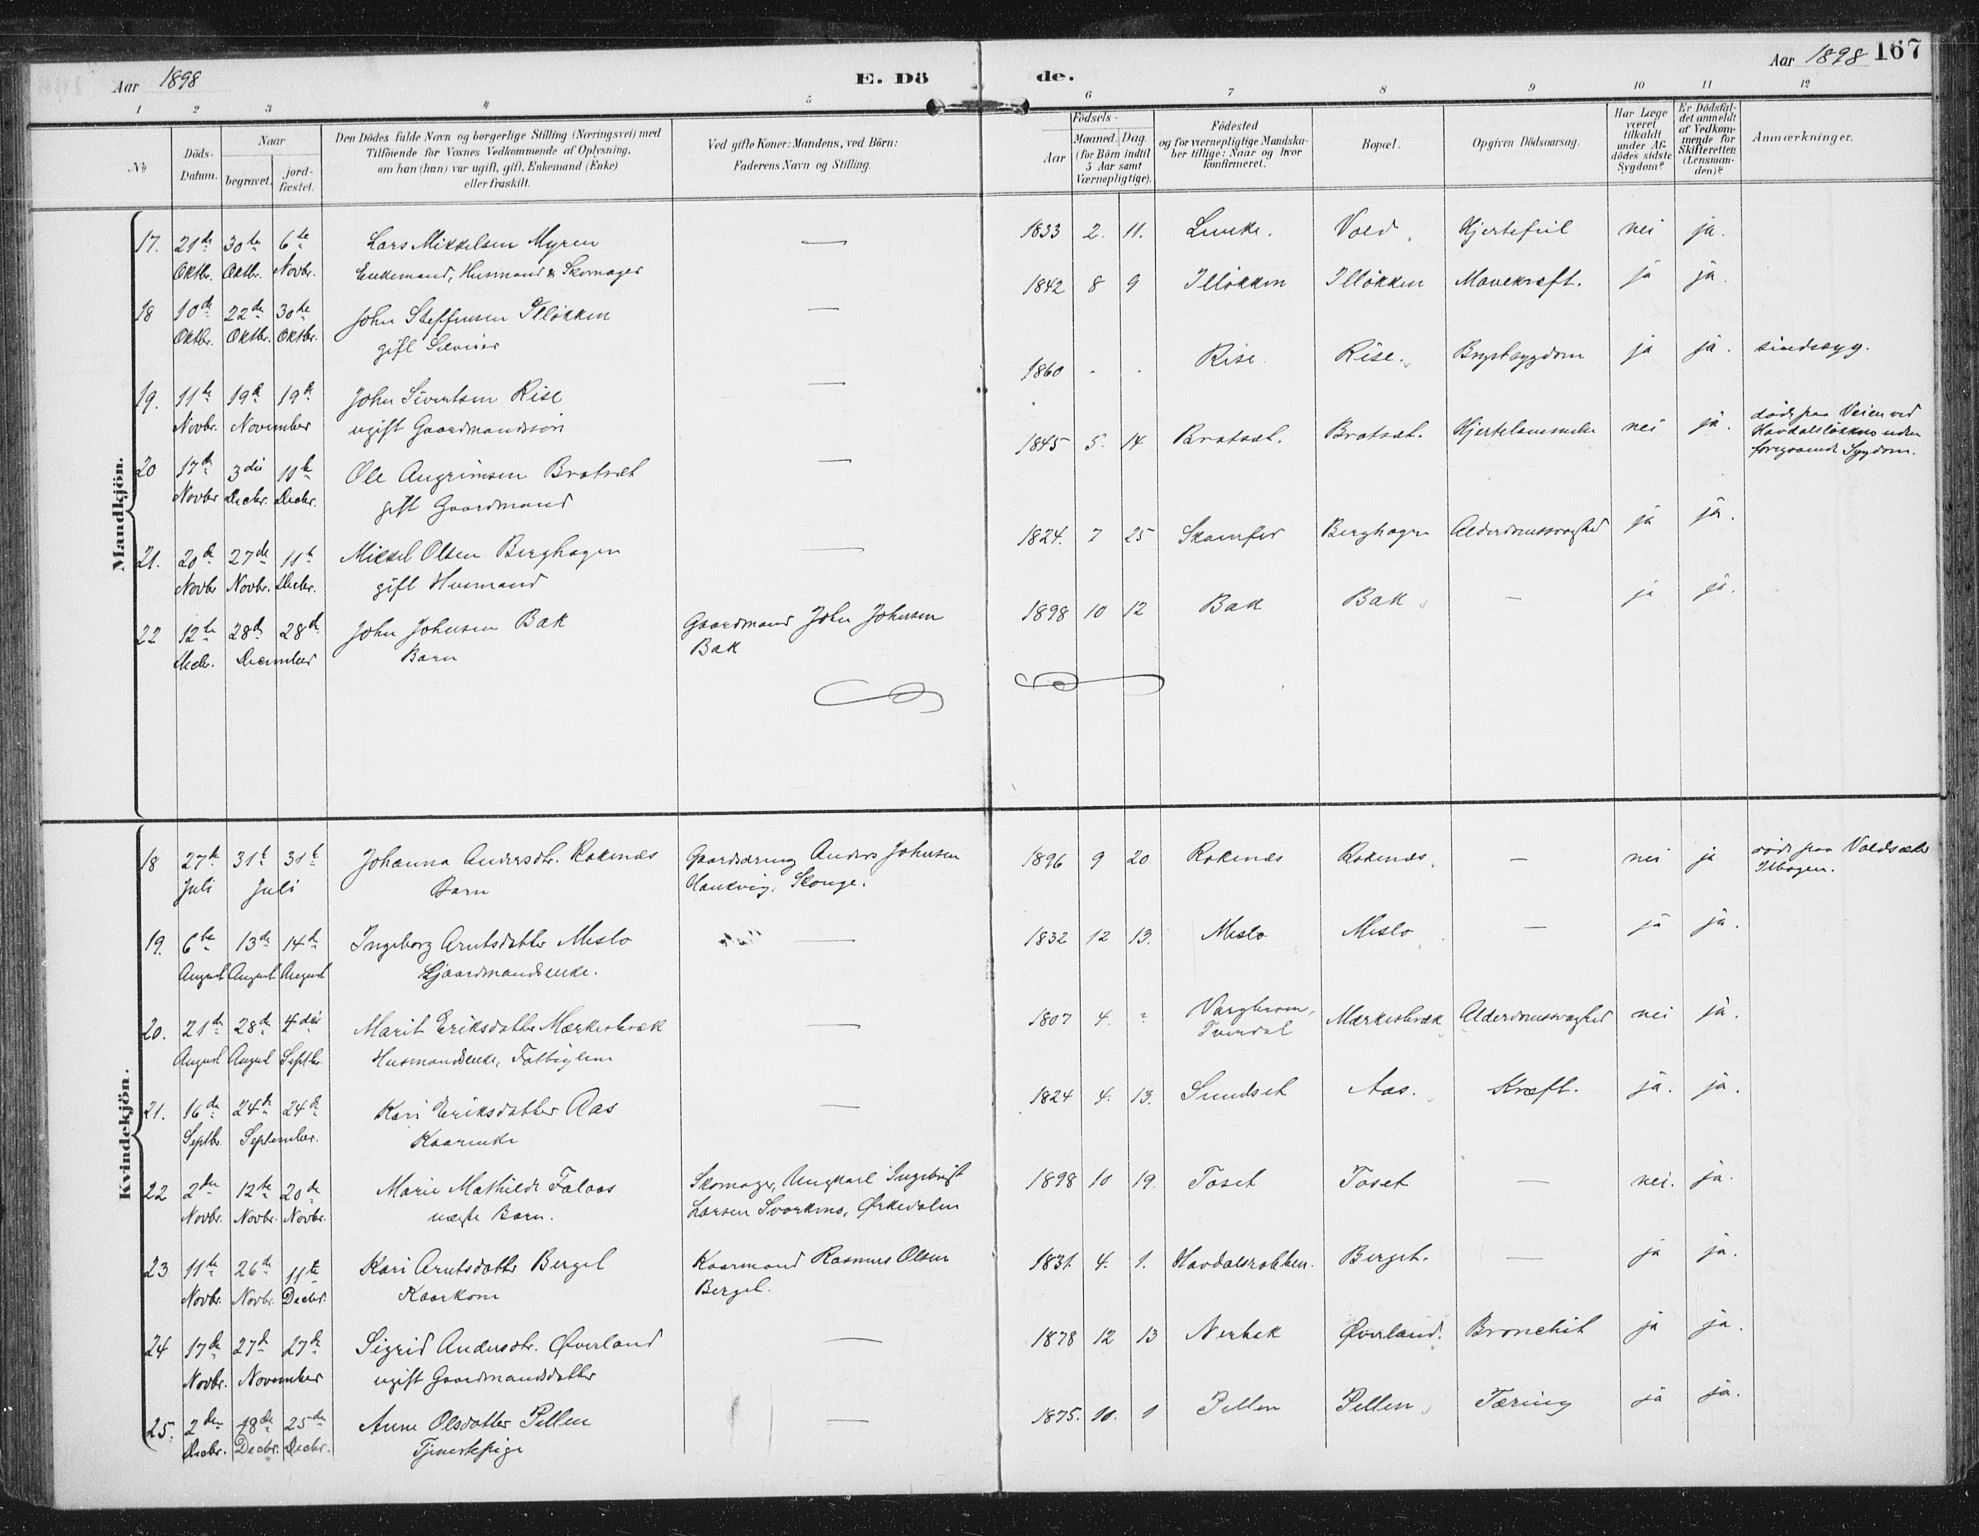 Aar 1898
E. Dö
de.
Aar 1898
167
1 2 3 4 5 6 7 8 9 10 11 12
№
Döds-
Datum.
Naar
begravet.
jord-
fæstet.
Den Dödes fulde Navn og borgerlige Stilling (Næringsvei) med
Tilföiende for Voxnes Vedkommende af Oplysning,
om han (hun) var ugift, gift, Enkemand (Enke)
eller fraskilt.
Ved gifte Koner: Mandens, ved Börn:
Faderens Navn og Stilling.
Födsels-
Aar
Maaned. Dag.
(for Börn indtil
5 Aar samt
Værnepligtige).
Födested
og for værnepligtige Mandska-
ber tillige: Naar og hvor
konfirmeret.
Bopæl.
Opgiven Dödsaarsag.
Har Læge
været
tilkaldt
under Af-
dödes sidste
Sygdom?
Er Dödsfal-
det anmeldt
af Vedkom-
mende for
Skifteretten
(Lensman-
den)?
Anmærkninger.
Mandkjön.
17. 21de 30te 6te Lars Mikkelsen Myren — 1833 2. 11. Vold Hjertefeil nei ja.
Oktbr. Oktbr. Novbr. Enkemand, Husmand & Skomager
18 10de 22de 30te John Steffensen Illökken — 1842 8 9 Illökken Illökken Mavekræft. ja ja.
Oktbr. Oktbr. Oktbr. gift
19. 11te 19de 19de John Sivertsen Rise — 1860 . . Rise. Rise. Brystsygdom ja ja. sindssyg.
Novbr. November ugift Gaardmandssön
20 17de 3die 11te Ole Angrimsen Bratsæt — 1845 5. 14 Bratsæt. Bratsæt. Hjertelammelse nei ja. döde paa Veien ved
Novbr. Decbr. Decbr. gift Gaardmand Havdalslökken uden
foregaaende Sygdom.
21. 20de 27de 11te Mikkel Olsen Berghagen — 1824. 7 25 Skamfer Berghagen Alderdomssvaghed ja ja.
Novbr Novbr. Decbr. gift Husmand
22 12te 28de 28de John Johnsen Bak Gaardmand John Johnsen 1898 10 12 Bak Bak — ja ja.
Decbr. December Barn Bak
Kvindekjön.
18 27de 31te 31te Johanna Andersdtr. Rokenæs Anders Johnsen 1896 9 20 Rokenæs Rokenæs. — nei ja döde paa Voldsæter
Juli Juli Barn Haukvig, Skouge. Ilbogen.
19. 6te 13de 14de Ingeborg Arntsdatter Meslo — 1832 12 13. Meslo Meslo — ja ja.
August August August Gaardmandsenke.
20. 21de 28de 4die Marit Eriksdatter Mærkesbræk — 1807 4. " Tverdal Mærkesbræk Alderdomssvaghed nei ja.
August August Septbr. Husmandsenke, Fatbiglem
21. 16de 24de 24de Kari Eriksdatter Aas — 1824 4. 13. Sundset Aas. Kræft. ja. ja.
Septbr. September. Kaarenke
22 2den 12te 20de Marie Mathilde Falaas Skomager, Ungkarl Ingebrigt 1898 10 19. Toset Toset — nei. ja.
Novbr. Novbr. Novbr. uægte Barn. Larsen Svorkmo, Ørkedalen
23 11te 26te 11te Kari Arntsdatter Berget Kaarmand Rasmus Olsen 1831. 4. 1. Berget. — ja ja.
Novbr. Novbr. Decbr. Kaarkone Berget.
24 17de 27de 27de Sigrid Andersdtr. Øverland — 1878 12 13 Nerbak Øverland. Bronchit ja ja.
Novbr. November ugift Gaardmandsdatter
25. 2den 18de 25de Anne Olsdatter Pellen — 1875. 10. 1 Pellen Pellen Tæring ja ja.
Decbr. Decbr. Decbr. Tjenestepige